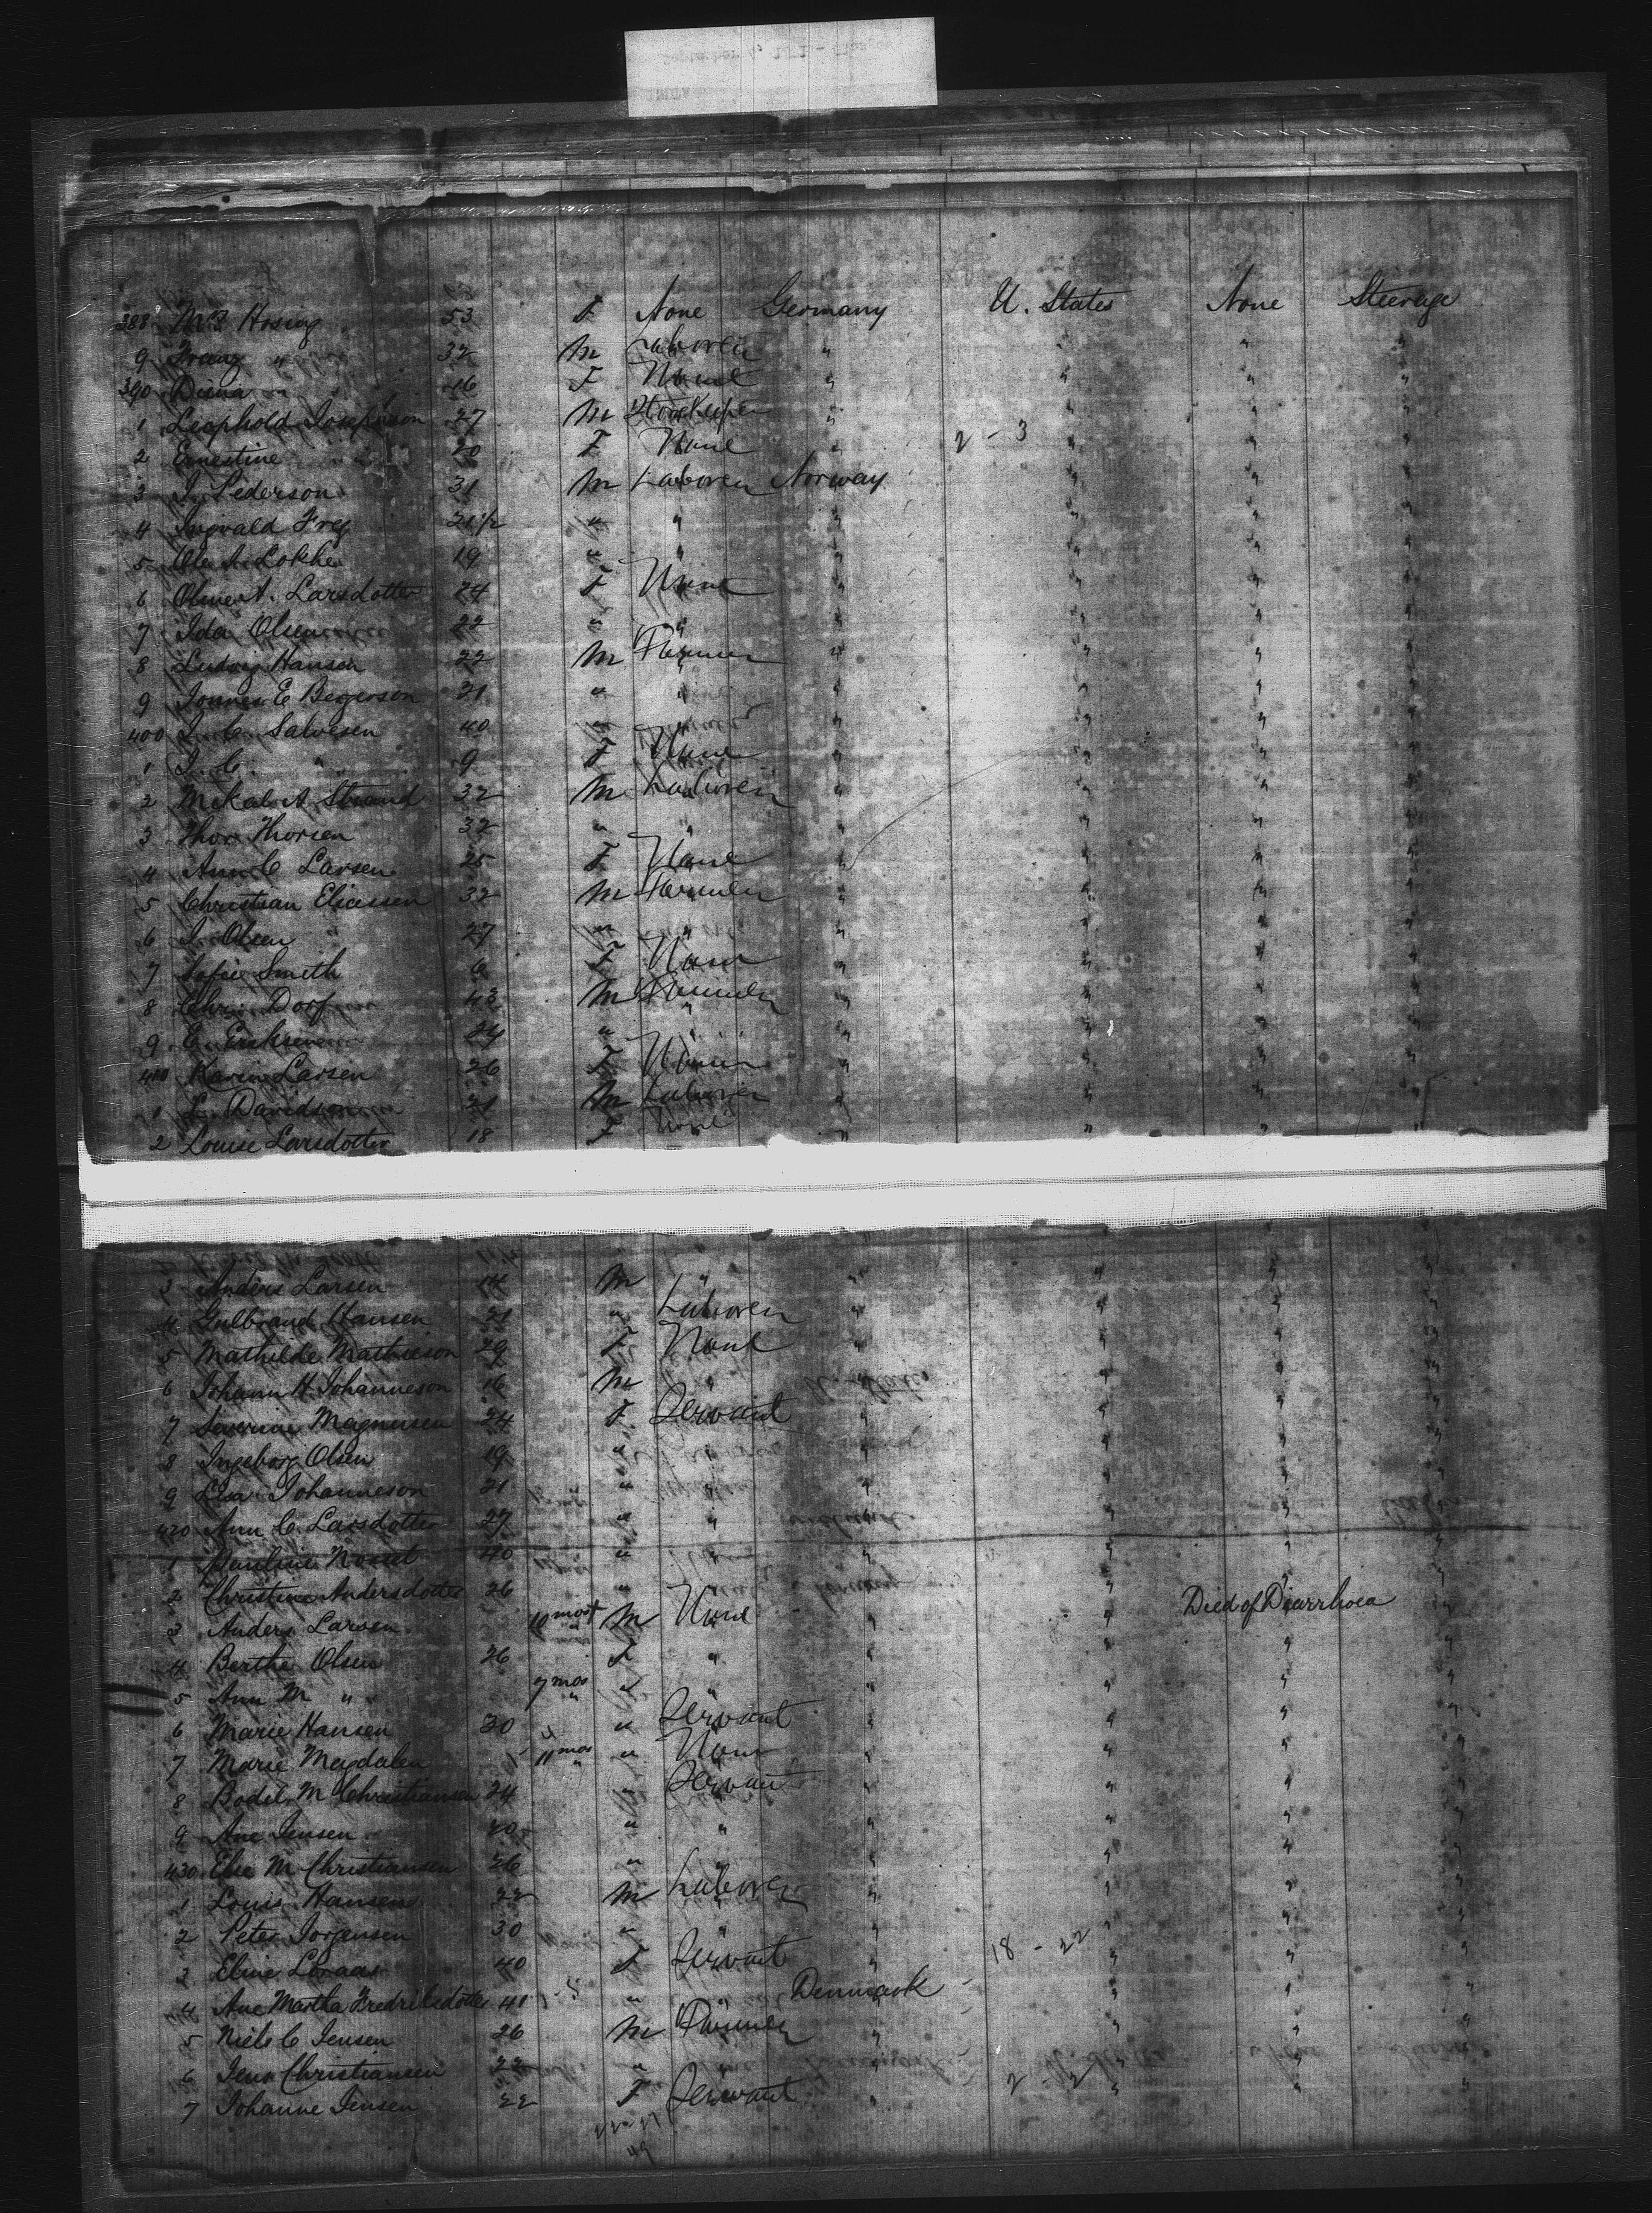 388 Mrs Hosing 53 F None Germany U. States None Steerage
9 Franz " 32 M Laborer " " " "
390 Diena 16 F None " " " "
1 Leophold Josephson 27 M Storekeeper " " " "
2 Ernestine " 20 F None " 2 - 3 " " "
3 J. Pederson 31 M Laborer Norway " " "
4 Ingvald Frey 21 1/2 " " " " " "
5 Ole A. Lokke 19 " " " " " "
6 A. Larsdotter 24 F None " " " "
7 Ida Olsen 22 " " " " " "
8 Ludvig Hansen 22 M Farmer " " " "
9 E Bergerson 21 " " " " " "
400 J. C. Salvesen 40 " " " " "
1 J. C. " 9 F None " " " "
2 Mikal A Strand 32 M Laborer " " " "
3 Thor Thorsen 32 " " " " " "
4 Ann C Larsen 25 F None " " " "
5 Christian Eliassen 32 M Farmer " " " "
6 J. Olsen 27 " " " " " "
7 Sofie Smith 6 F None " " " "
8 Chr. Dorf 43 M Farmer " " " "
9 E. Eriksen 24 " " " " " "
410 Karin Larsen 26 F None " " " "
1 L. Davidson 21 M Laborer " " " "
2 Louise Larsdotter 18 F None " " " "
3 Anders Larsen 14 M " " " " "
4 Gulbrand Hansen 21 " Laborer " " " "
5 Mathilde Mathieson 29 F None " " " "
6 Johann H. Johanneson 16 M " " " " "
7 Severine Magnusen 24 F Servant " " " "
8 Ingeborg Olsen 19 " " " " " "
9 Lisa Johanneson 21 " " " " " "
420 Ann C. Larsdotter 27 " " " " " "
1 Pauline 40 " " " " "
2 Christine Andersdotter 26 " " " " "
3 Anders Larsen 10 mos M None " Died of Diarrhoea "
4 Berthe Olsen 26 F " " " " "
5 Ann M " 7 mos " " " " " "
6 Marie Hansen 30 " Servant " " " "
7 Marie Magdalen 11 mos " None " " " "
8 Bodil M Christiansen 24 " Servant " " " "
9 Ane Jensen 20 " " " " " "
430 Else M Christiansen 26 " " " " " "
1 Louis Hansen 22 M Laborer " " " "
2 Peter Jorgensen 30 " " " " " "
3 Eline 40 F Servant " 18 - 22 " " "
4 Ane Martha Fredriksdotter 41 " " Denmark " " "
5 Niels C Jensen 26 M Farmer " " " "
6 Jens Christiansen 22 " " " " "
7 Johanne Jensen 22 F Servant " 2 - 2 " " "